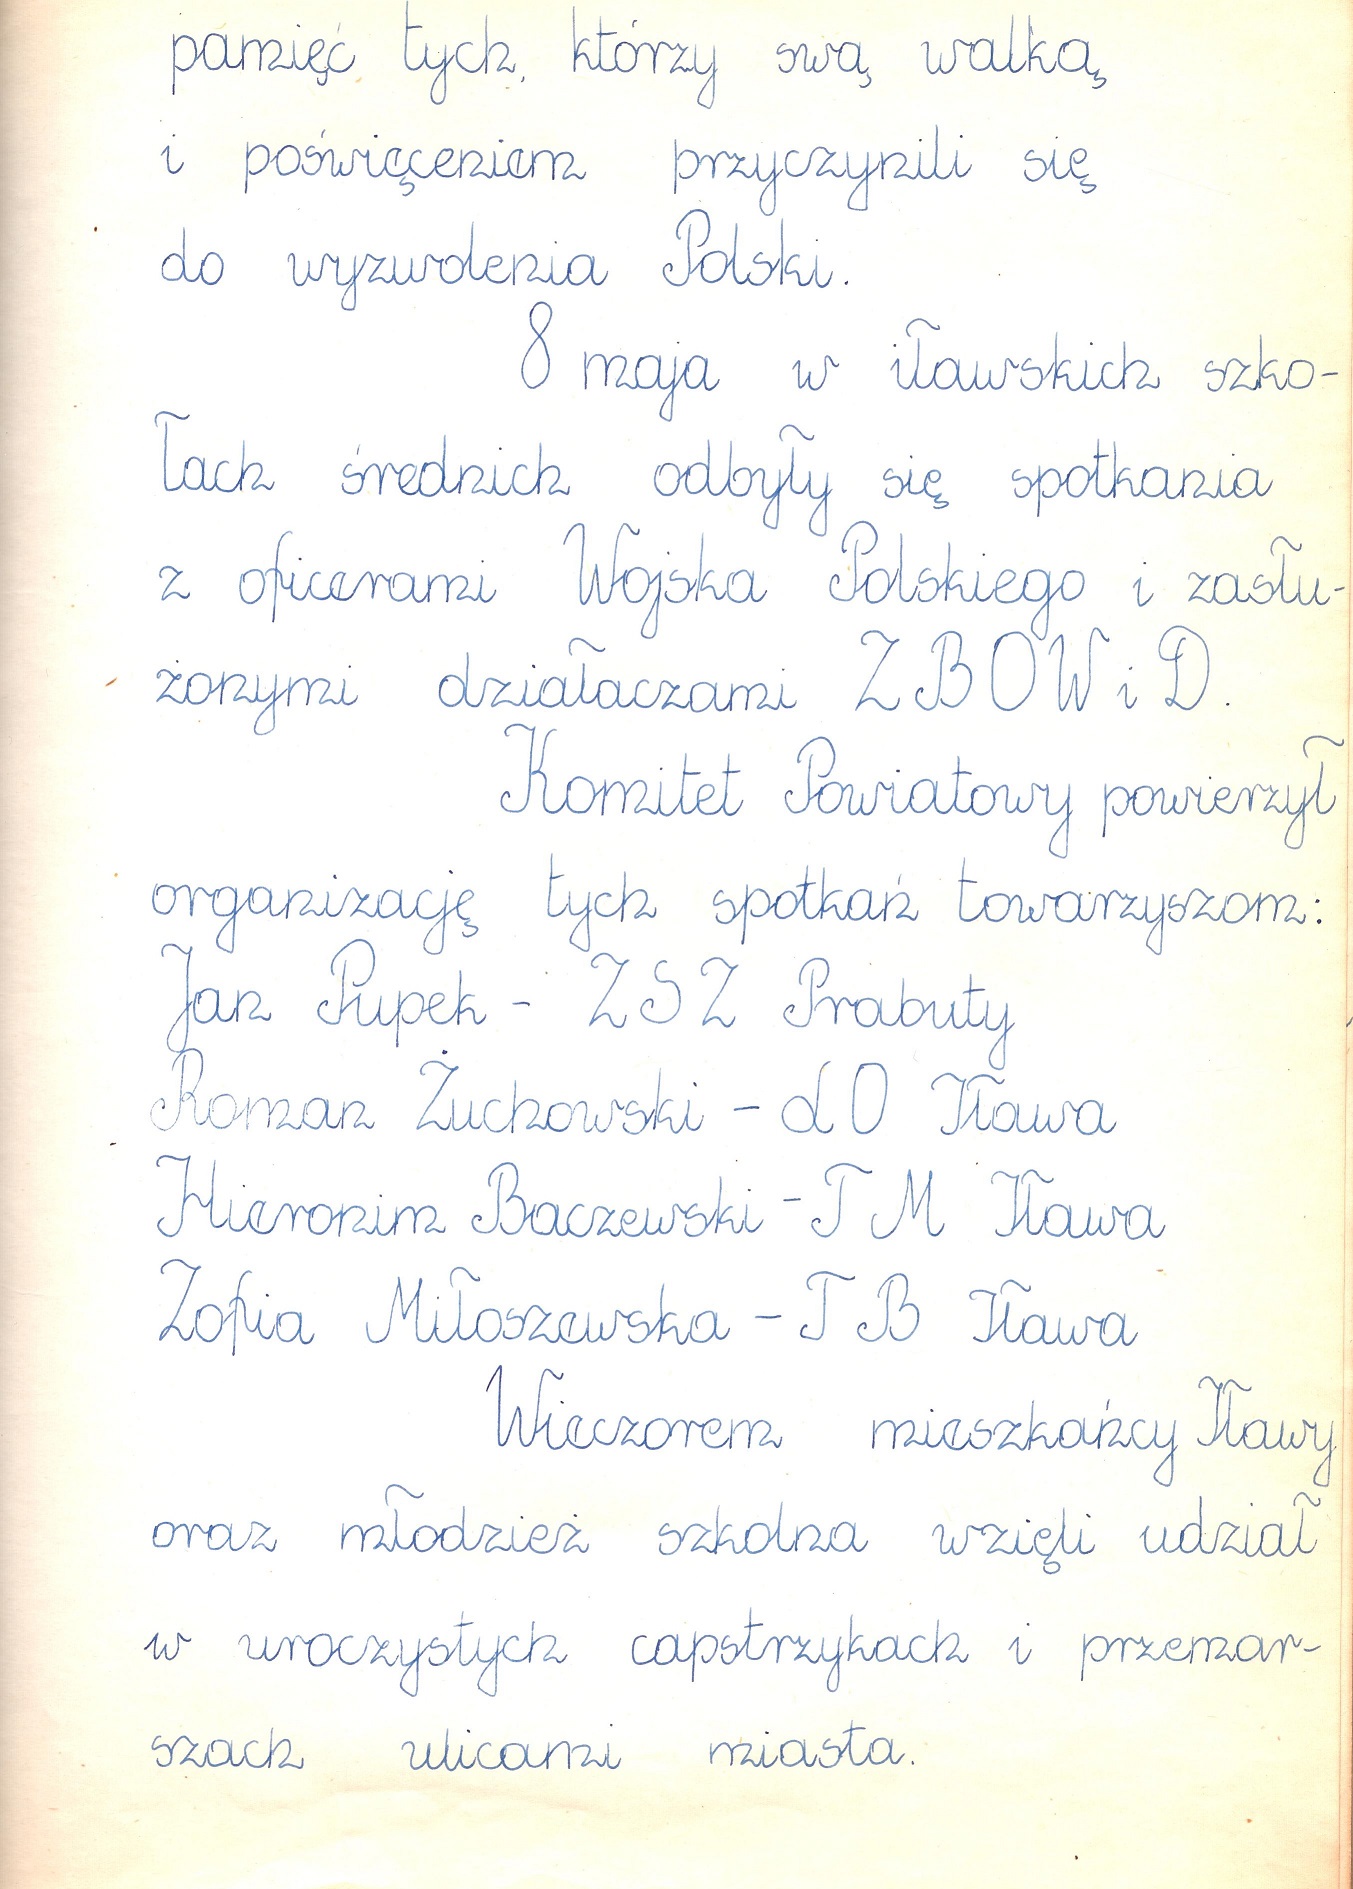 pamięć tych, którzy swą walką
i poświęceniem przyczynili się
do wyzwolenia Polski.
8 maja w iławskich szko-
łach średnich odbyły się spotkania
z oficerami Wojska Polskiego i zasłu-
żonymi działaczami ZBOWiD.
Komitet Powiatowy powierzył
organizację tych spotkań towarzyszom:
Jan Pupek - ZSZ Prabuty
Roman Żuchowski - LO Iława
Hieronim Baczewski - TM Iława
Zofia Miłoszewska - TB Iława
Wieczorem mieszkańcy Iławy
oraz młodzież szkolna wzięli udział
w uroczystych capstrzykach i przemar-
szach ulicami miasta.